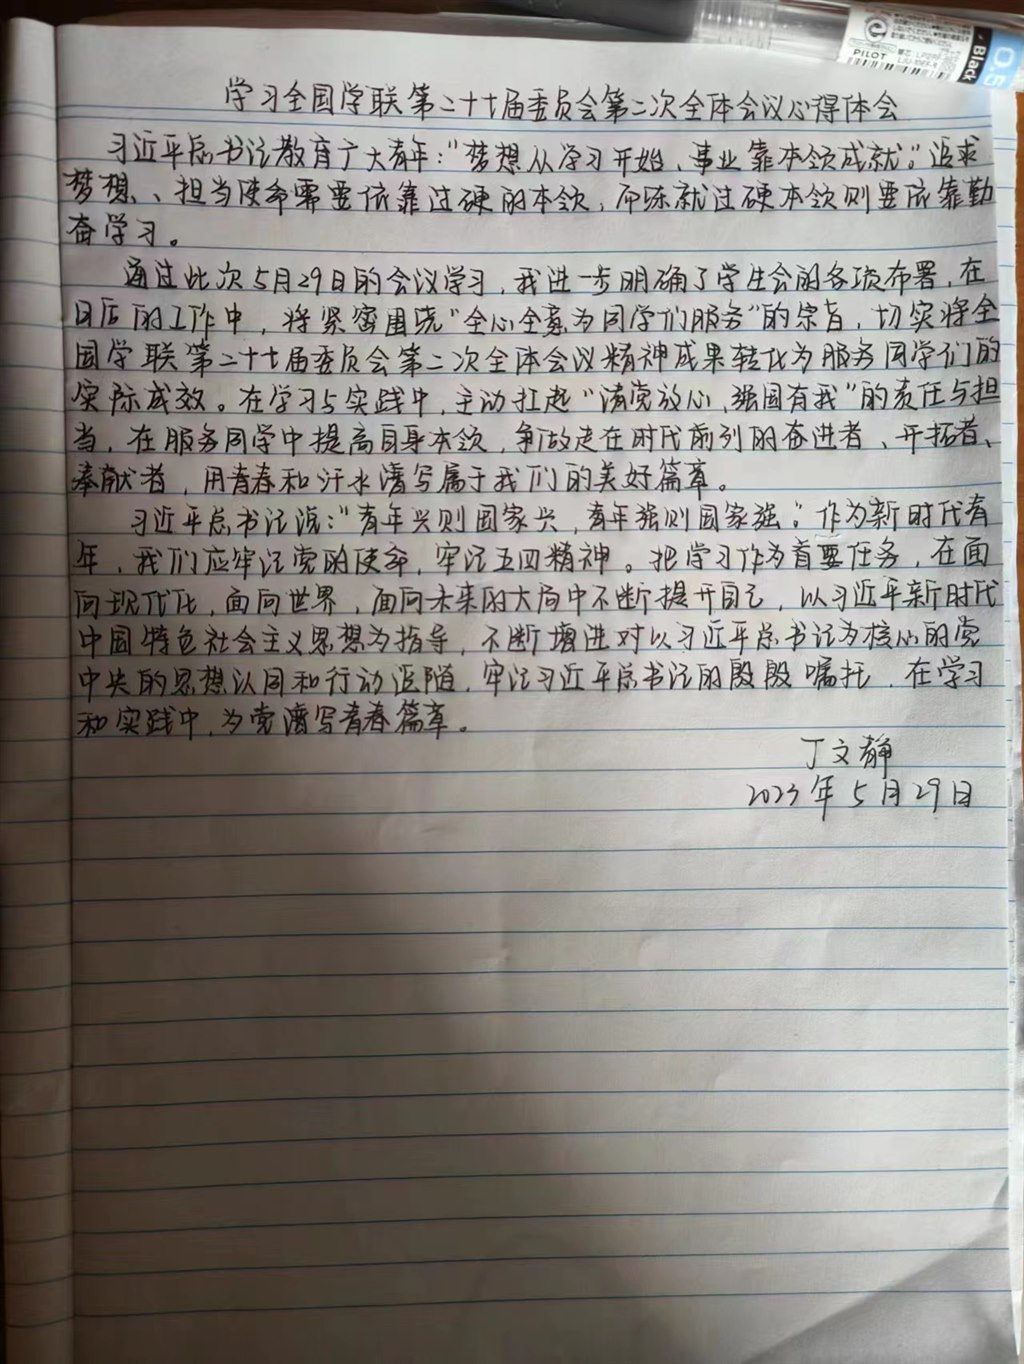 PILOT
Black
0.5
学习全国学联第二十七届委员会第二次全体会议心得体会
习近平总书记教育广大青年:“梦想从学习开始、事业靠本领成就。”追求
梦想、、担当使命需要依靠过硬的本领,而练就过硬本领则要依靠勤
奋学习。
通过此次5月29日的会议学习,我进一步明确了学生会的各项布署,在
日后的工作中,将紧密围绕“全心全意为同学们服务”的宗旨,切实将全
国学联第二十七届委员会第二次全体会议精神成果转化为服务同学们的
实际成效。在学习与实践中,主动扛起“请党放心,强国有我”的责任与担
当,在服务同学中提高自身本领,争做走在时代前列的奋进者、开拓者、
奉献者,用青春和汗水谱写属于我们的美好篇章。
习近平总书记说:“青年兴则国家兴,青年强则国家强。”作为新时代青
年,我们应牢记党的使命,牢记五四精神。把学习作为首要任务,在面
向现代化,面向世界,面向未来的大局中不断提升自己,以习近平新时代
中国特色社会主义思想为指导,不断增进对以习近平总书记为核心的党
中央的思想认同和行动追随,牢记习近平总书记的殷殷嘱托,在学习
和实践中,为党谱写青春篇章。
丁文静
2023年5月29日